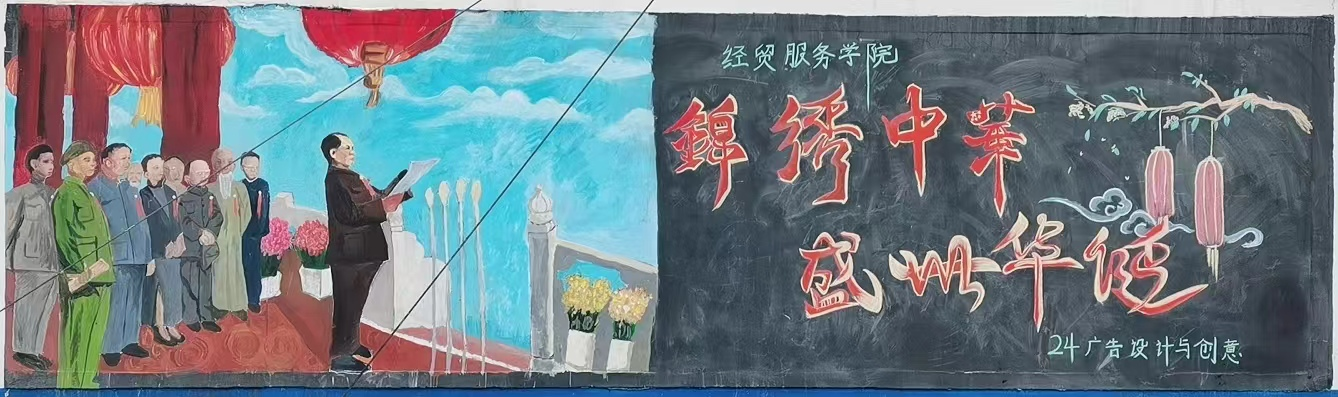 经贸服务学院
錦绣中華
盛世华诞
24广告设计与创意